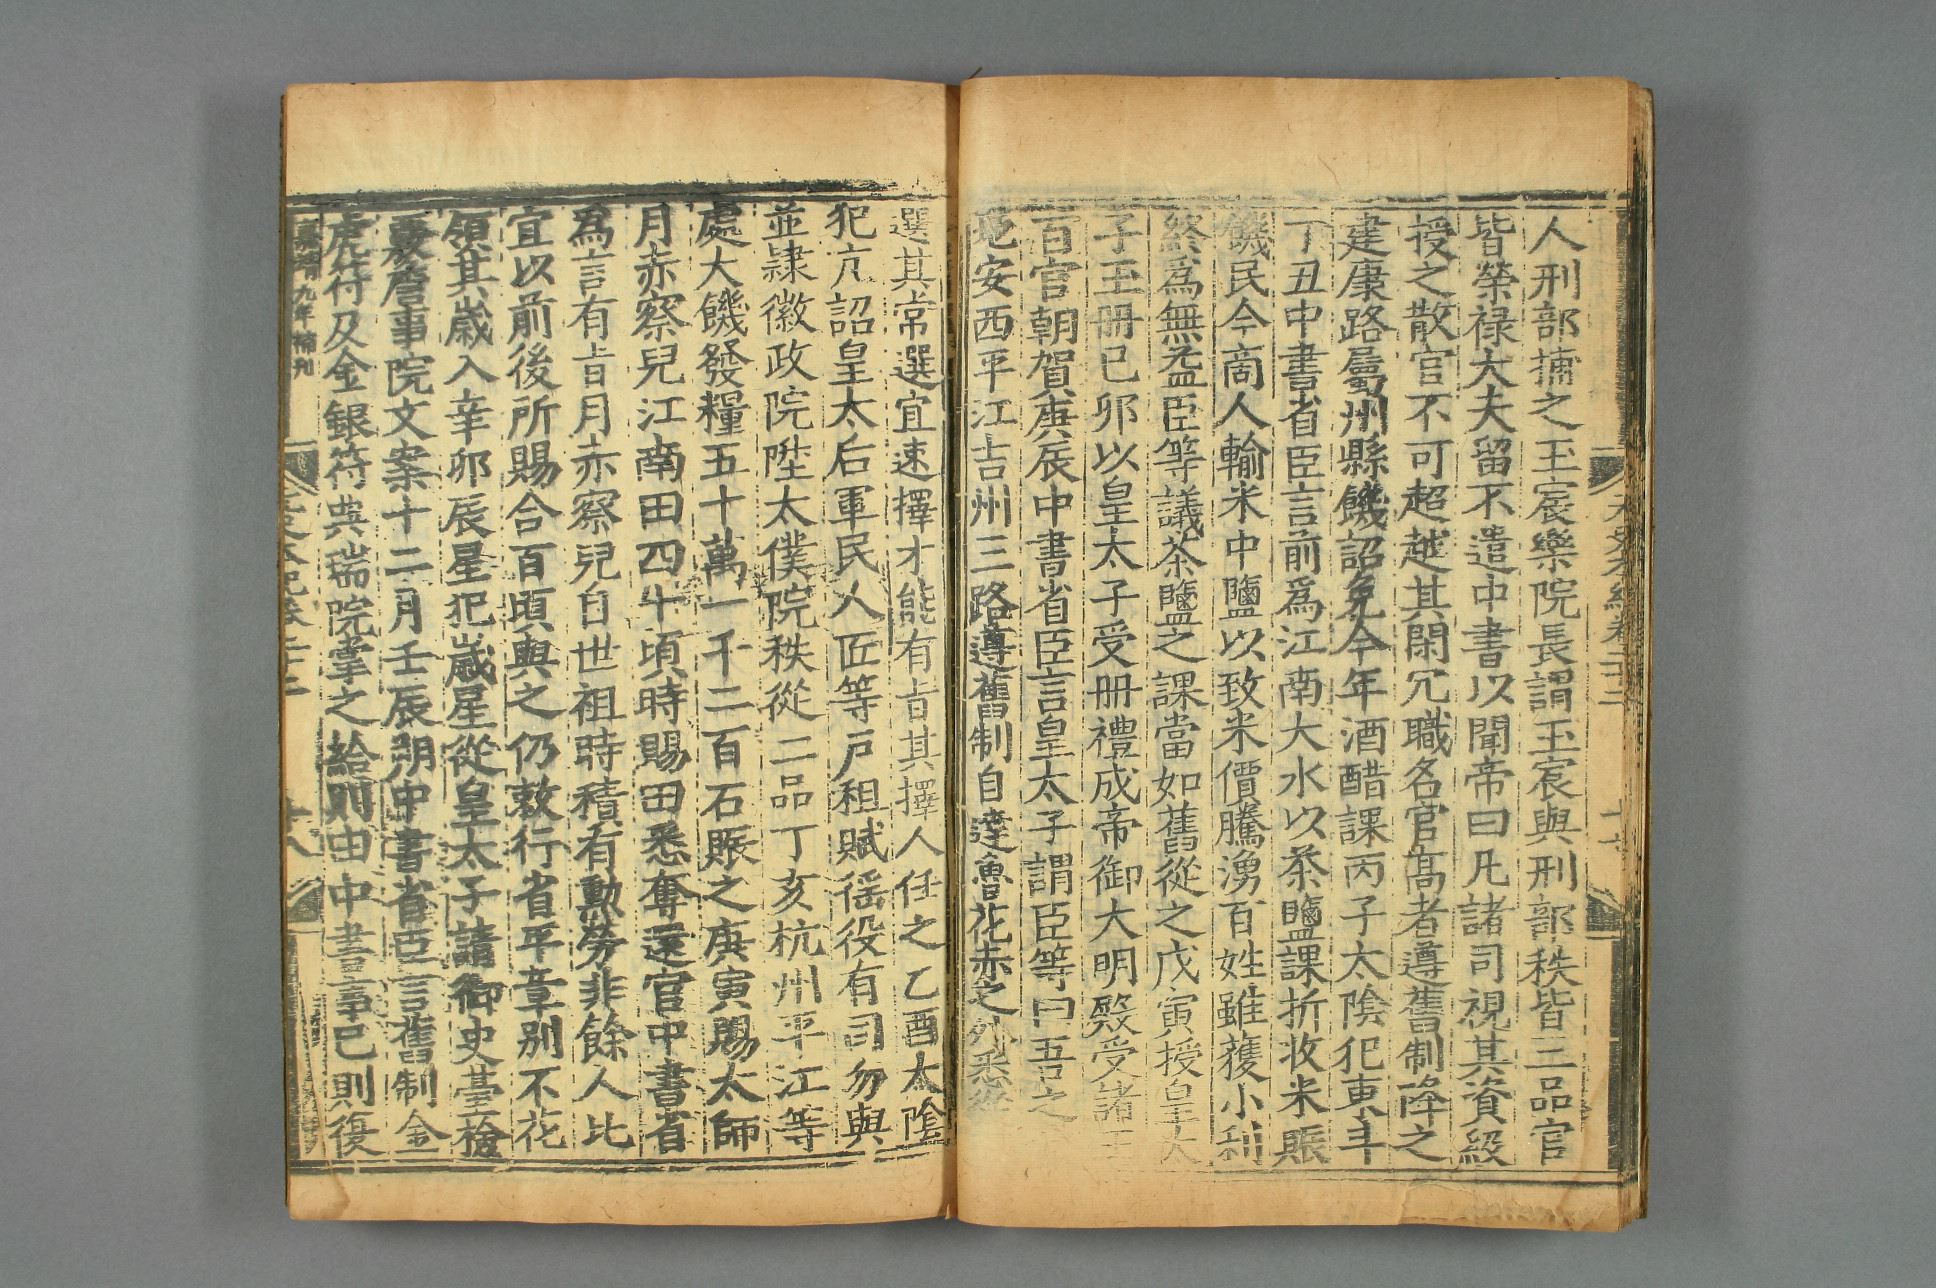 人刑部捕之玉宸樂院長謂玉宸與刑部秩皆三品官
皆榮祿大夫留不遣中書以聞帝曰凡諸司視其資級
授之散官不可超越其閑冗職名官高者遵舊制降之
建康路屬州縣饑詔免今年酒醋課丙子太陰犯東斗
丁丑中書省臣言前爲江南大水以茶鹽課折收米賑
饑民今商人輸米中鹽以致米價騰湧百姓雖獲小利
終爲無益臣等議茶鹽之課當如舊從之戊寅授皇太
子玉冊己卯以皇太子受冊禮成帝御大明殿受諸王
百官朝賀庚辰中書省臣言皇太子謂臣等曰吾之
地安西平江吉州三路遵舊制自達魯花赤之外悉從
選其常選宜速擇才能有旨其擇人任之乙酉太陰
犯亢詔皇太后軍民人匠等戶租賦徭役有司勿與
並隸徽政院陞太僕院秩從二品丁亥杭州平江等
處大饑發糧五十萬一千二百石賑之庚寅賜太師
月赤察兒江南田四十頃時賜田悉奪還官中書省
爲言有旨月赤察兒自世祖時積有勲勞非餘人比
宜以前後所賜合百頃與之仍敕行省平章別不花
領其歲入辛卯辰星犯歲星從皇太子請御史臺檢
覈詹事院文案十二月壬辰朔中書省臣言舊制金
虎符及金銀符典瑞院掌之給則由中書事已則復
九年補刊
元史本紀卷二十二
十八